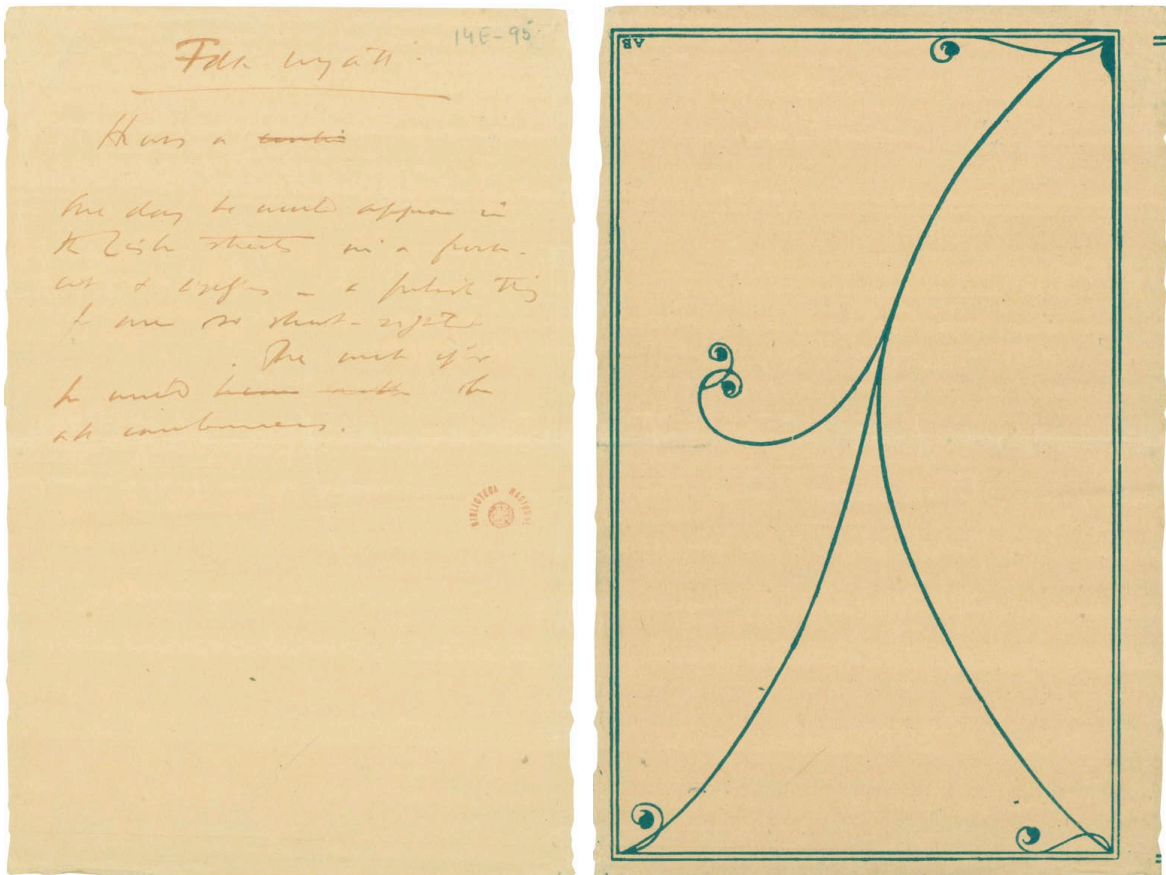 14E-95
Fdk Wyatt.
He was a
One day he would appear in
the Lisbon streets in a frock-
coat & – a foolish thing
for one so short-sighted
The week after
he would the
countrymen.
BIBLIOTECA NACIONAL
AB